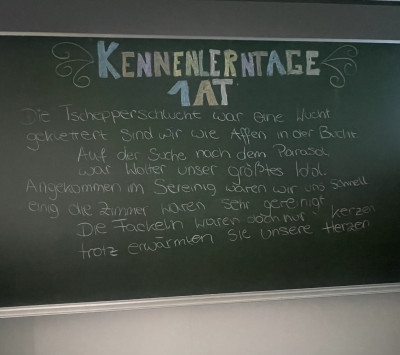 KENNENLERNTAGE
1AT
Die Tschepperschlucht war eine Wucht
geklettert sind wir wie Affen in der Bucht.
Auf der Suche nach dem Parasol
war Walter unser größtes Idol.
Angekommen im Sereinig waren wir uns schnell
einig die Zimmer waren sehr gereinigt.
Die Fackeln waren doch nur Kerzen
trotz erwärmten Sie unsere Herzen